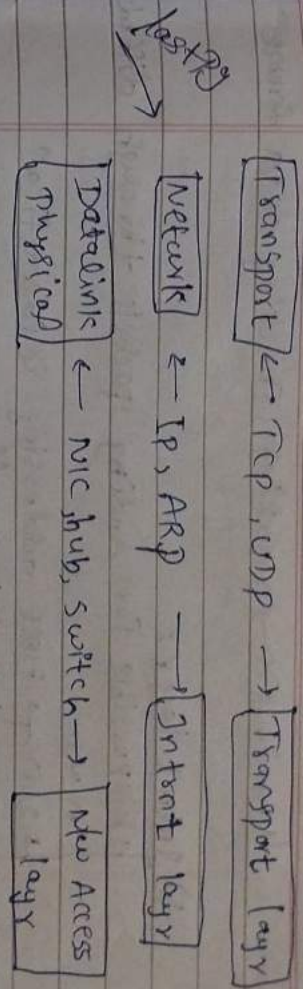 last pg
Transport ← TCP, UDP → Transport layr
Network ← Ip, ARP → Intrnt layr
Datalink ← NIC, hub, switch → N/w Access
physical layr